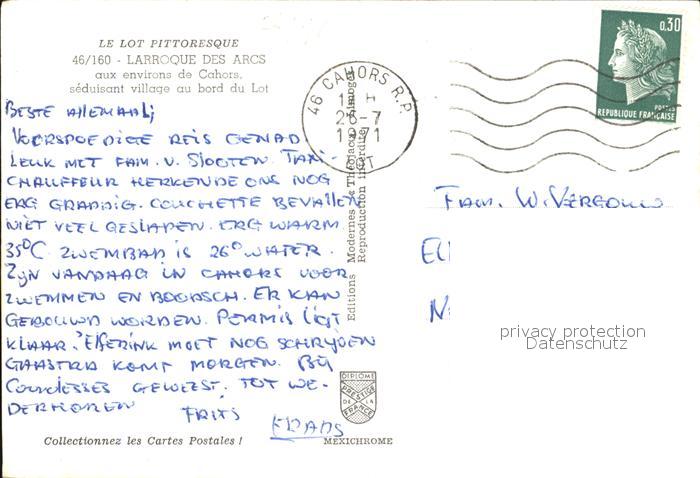 LE LOT PITTORESQUE
46/160 - LARROQUE DES ARCS
aux environs de Cahors,
séduisant village au bord du Lot
BESTE ALLEMAAL;
VOORSPOEDIGE REIS GEHAD
LEUK MET FAM. V. SLOOTEN. TAXI-
CHAUFFEUR HERKENDE ONS NOG
ERG GRAPPIG. COUCHETTE BEVALLEN
NIET VEEL GESLAPEN. ERG WARM
35°C. ZWEMBAD IS 26° WATER.
ZIJN VANDAAG IN CAHORS VOOR
ZWEMMEN EN BOODSCH. ER KAN
GEBOUWD WORDEN. PERMIS LIGT
KLAAR. MOET NOG SCHRIJVEN
GAASTRA KOMT MORGEN. BIJ
GEWEEST. TOT WE-
DERHOREN FRITS
Collectionnez les Cartes Postales !
Editions Modernes « Théojac » Limoges
Reproduction interdite
DIPLOME
PRESTIGE
DE LA
FRANCE
MEXICHROME
46 CAHORS R.P.
H
26-7
1971
LOT
0,30
POSTES
REPUBLIQUE FRANÇAISE
FAM. W. VERGOUW
N
privacy protection
Datenschutz